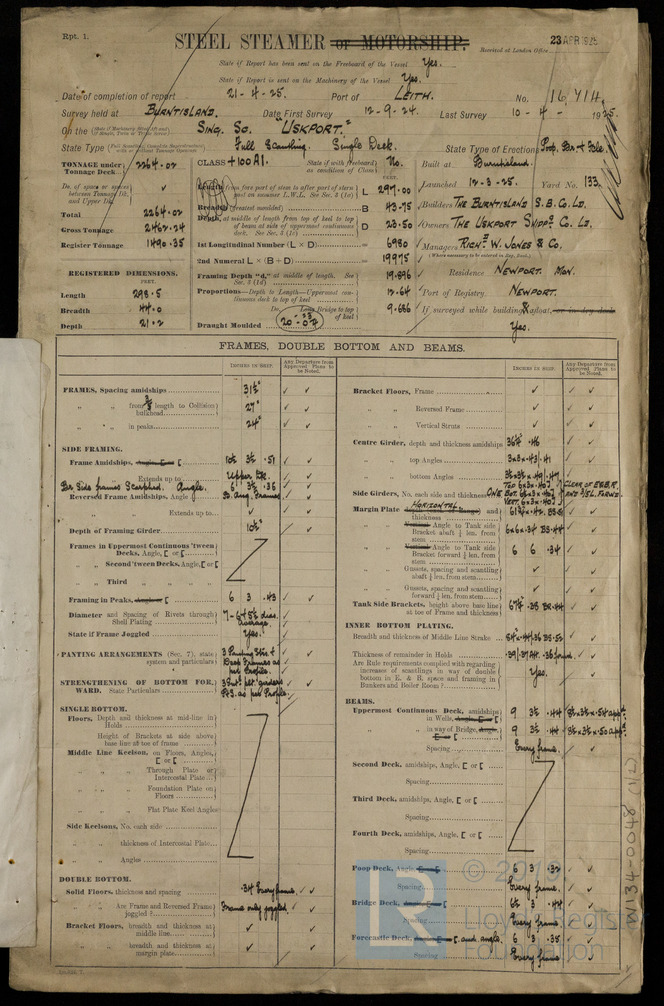 Rpt. 1.
STEEL STEAMER or MOTORSHIP.
23 APR 1925
Received at London Office
State if Report has been sent on the Freeboard of the Vessel Yes.
State if Report is sent on the Machinery of the Vessel Yes.
Date of completion of report 21-4-25. Port of LEITH. No. 16,414
Survey held at BURNTISLAND. Date First Survey 12-9-24. Last Survey 10-4-1925.
On the Sing. Sc. "USKPORT."
State Type Full Scantling. Single Deck. State Type of Erections Poop, Br. & F'cle.
TONNAGE under Tonnage Deck 2264.02
Do. of space or spaces between Tonnage Dk. and Upper Dk.
Total 2264.02
Gross Tonnage 2462.24
Register Tonnage 1490.35
REGISTERED DIMENSIONS.
FEET.
Length 298.5
Breadth 44.0
Depth 21.2
CLASS +100A1. State if with Freeboard as condition of Class No.
FEET.
Length from fore part of stem to after part of stern post on summer L.W.L. See Sec. 3 (1a) L 297.00
Breadth (greatest moulded) B 43.75
Depth, at middle of length from top of keel to top of beams at side of uppermost continuous deck. See Sec. 3 (1c) D 23.50
1st Longitudinal Number (L × D) = 6980
2nd Numeral L × (B + D) = 19975
Framing Depth "d," at middle of length. See Sec. 3 (1d) 19.896
Proportions—Depth to Length—Uppermost continuous deck to top of keel 12.64
Do. Long Bridge to top of keel 9.686
Draught Moulded
Built at Burntisland.
Launched 12-3-25. Yard No. 133.
Builders THE BURNTISLAND S. B. Co. LD.
Owners THE USKPORT SHIPPG Co. LD.
Managers RICHD W. JONES & Co.
(Where necessary to be entered in Reg. Book.)
Residence NEWPORT. MON.
Port of Registry NEWPORT.
If surveyed while building, afloat, or in dry dock
Yes.
FRAMES, DOUBLE BOTTOM AND BEAMS.
INCHES IN SHIP.
Any Departure from Approved Plans to be Noted.
FRAMES, Spacing amidships 31½"
" " from 3/5 length to Collision bulkhead 27"
" " in peaks 24"
SIDE FRAMING.
Frame Amidships, Angle, E or [ 10½ 3½ .51
" " Extends up to Upper Dk.
Br. Side frames Scarphed. Angle. 6" 3½ .36
Reversed Frame Amidships, Angle
" " Extends up to
Depth of Framing Girder 10½"
Frames in Uppermost Continuous 'tween Decks, Angle, [ or [
" " Second 'tween Decks, Angle, [ or [
" " Third " " "
Framing in Peaks, Angle or [ 6 3 .43
Diameter and Spacing of Rivets through Shell Plating
State if Frame Joggled Yes.
PANTING ARRANGEMENTS (Sec. 7), state system and particulars
as per Profile.
STRENGTHENING OF BOTTOM FORWARD. State Particulars
as per Profile.
SINGLE BOTTOM.
Floors, Depth and thickness at mid-line in Holds
" Height of Brackets at side above base line at toe of frame
Middle Line Keelson, on Floors, Angles, [ or [
" " Through Plate or Intercostal Plate
" " Foundation Plate on Floors
" " Flat Plate Keel Angles
Side Keelsons, No. each side
" " thickness of Intercostal Plate
" " Angles
DOUBLE BOTTOM.
Solid Floors, thickness and spacing .34 Every frame
" " Are Frame and Reversed Frame joggled? Frame only joggled.
Bracket Floors, breadth and thickness at middle line
" " breadth and thickness at margin plate
Bracket Floors, Frame
" " Reversed Frame
" " Vertical Struts
Centre Girder, depth and thickness amidships 36½ .46
" " top Angles 3x3x.43/.41
" " bottom Angles
Side Girders, No. each side and thickness ONE
Margin Plate HORIZONTAL and thickness
" " Angle to Tank side Bracket abaft ¼ len. from stem 6x6x.34
" " Angle to Tank side Bracket forward ¼ len. from stem 6 6 .34
" " Gussets, spacing and scantling abaft ¼ len. from stem
" " Gussets, spacing and scantling forward ¼ len. from stem
Tank Side Brackets, height above base line at toe of Frame and thickness
INNER BOTTOM PLATING.
Breadth and thickness of Middle Line Strake
Thickness of remainder in Holds
Are Rule requirements complied with regarding increase of scantlings in way of double bottom in E. & B. space and framing in Bunkers and Boiler Room? Yes.
BEAMS.
Uppermost Continuous Deck, amidships in Wells, Angle, [ or [ 9 3½ .44
" " in way of Bridge, Angle, [ or [ 9 3½ .44
Spacing Every frame.
Second Deck, amidships, Angle, [ or [
Spacing
Third Deck, amidships, Angle, [ or [
Spacing
Fourth Deck, amidships, Angle, [ or [
Spacing
Poop Deck, Angle, [ or [ 6 3 .32
Spacing Every frame.
Bridge Deck, Angle, [ or [
Spacing Every frame.
Forecastle Deck, Angle, [ or [ and angle. 6 3 .35
Spacing Every frame
W134-0048 (1/2)
© 2019
Lloyd's Register
Foundation